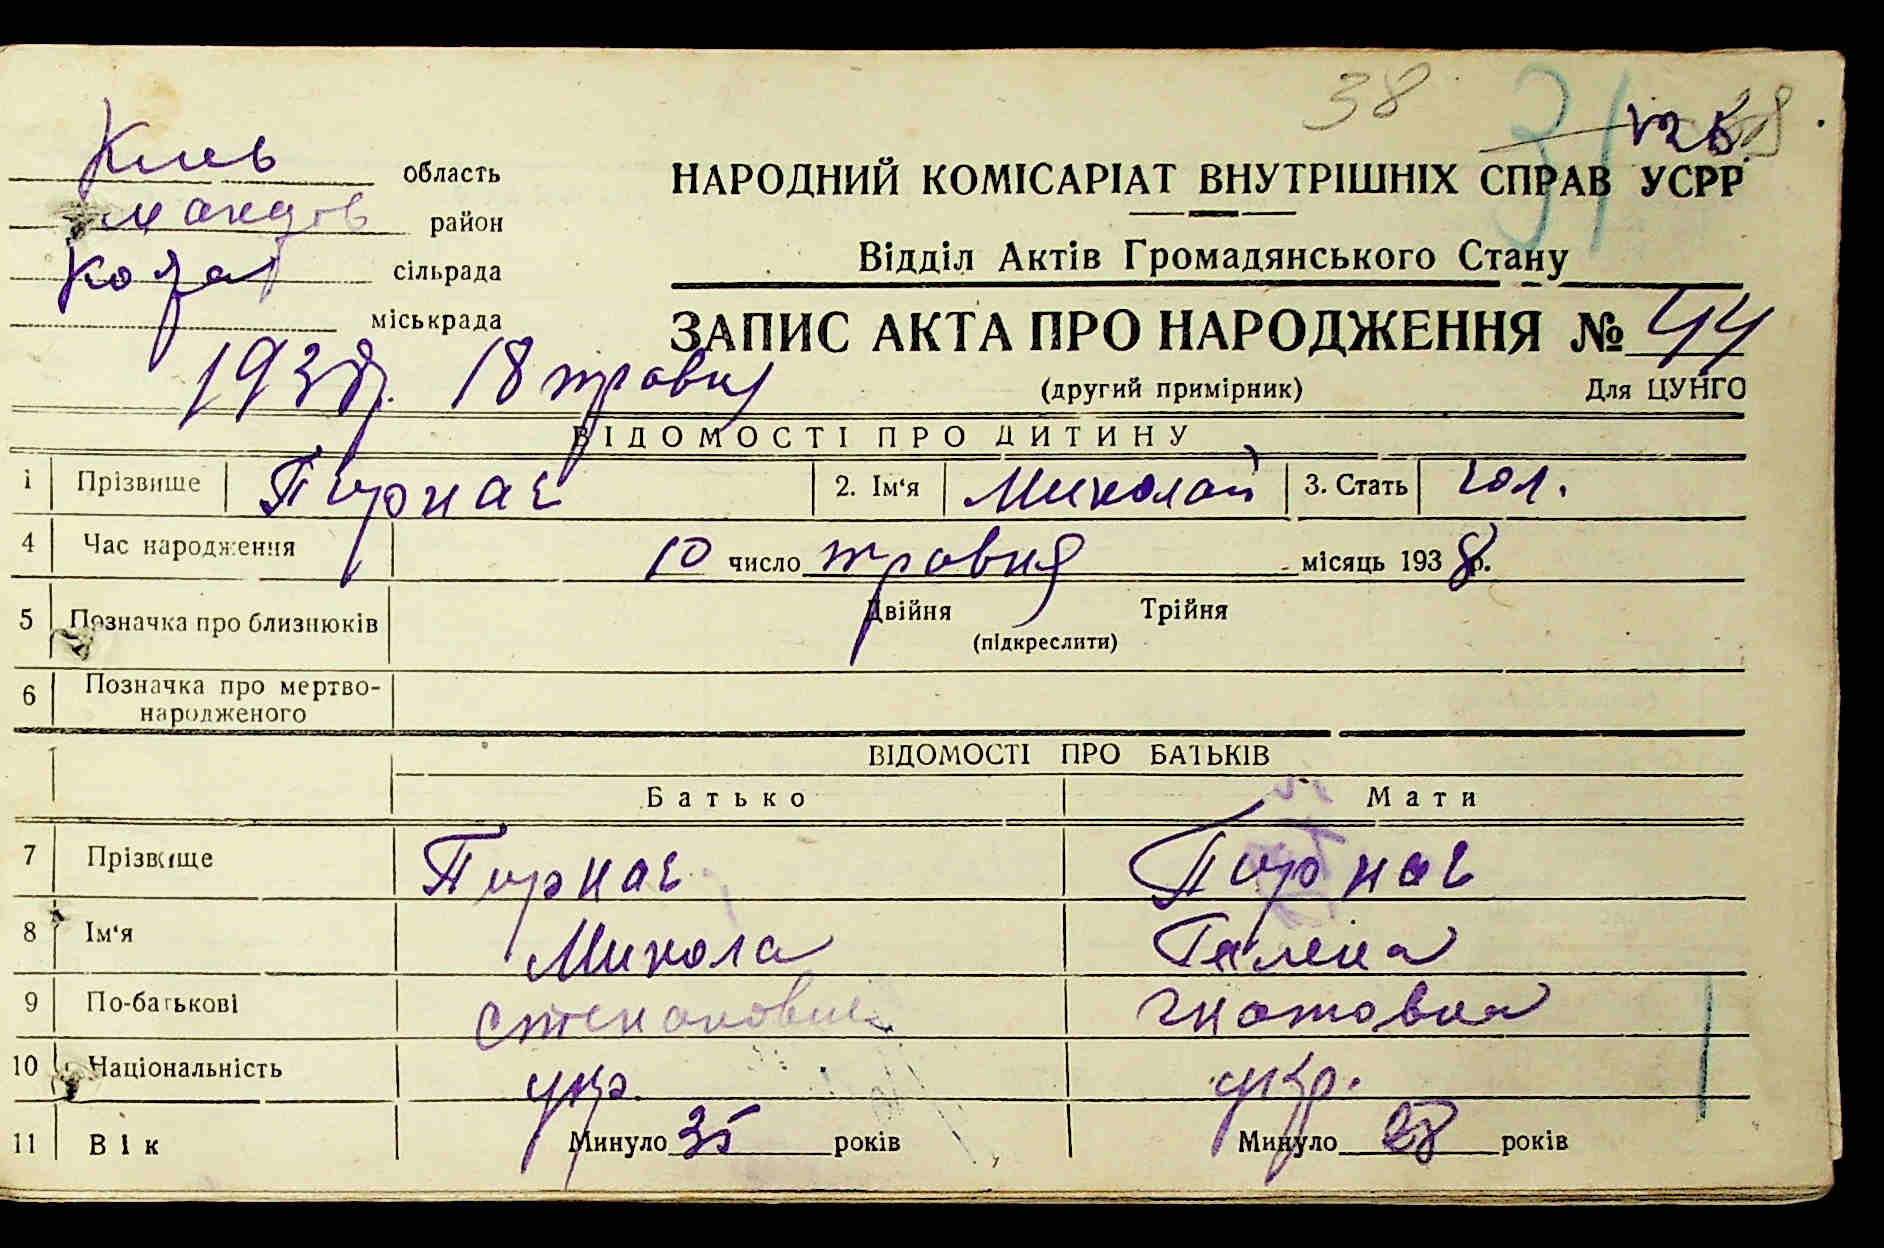 38
31
Киев область
район
сільрада
міськрада
НАРОДНИЙ КОМІСАРІАТ ВНУТРІШНІХ СПРАВ УСРР
Відділ Актів Громадянського Стану
ЗАПИС АКТА ПРО НАРОДЖЕННЯ № 44
1938 р. 18 травня
(другий примірник) Для ЦУНГО
ВІДОМОСТІ ПРО ДИТИНУ
1 Прізвище 2. Ім‘я Миколай 3. Стать чол.
4 Час народження 10 число травня місяць 1938 р.
5 Позначка про близнюків Двійня Трійня
(підкреслити)
6 Позначка про мертво-
народженого
ВІДОМОСТІ ПРО БАТЬКІВ
Батько Мати
7 Прізвище
8 Ім‘я Микола Галина
9 По-батькові Степанович Гнатовна
10 Національність укр. укр.
11 Вік Минуло 35 років Минуло 28 років